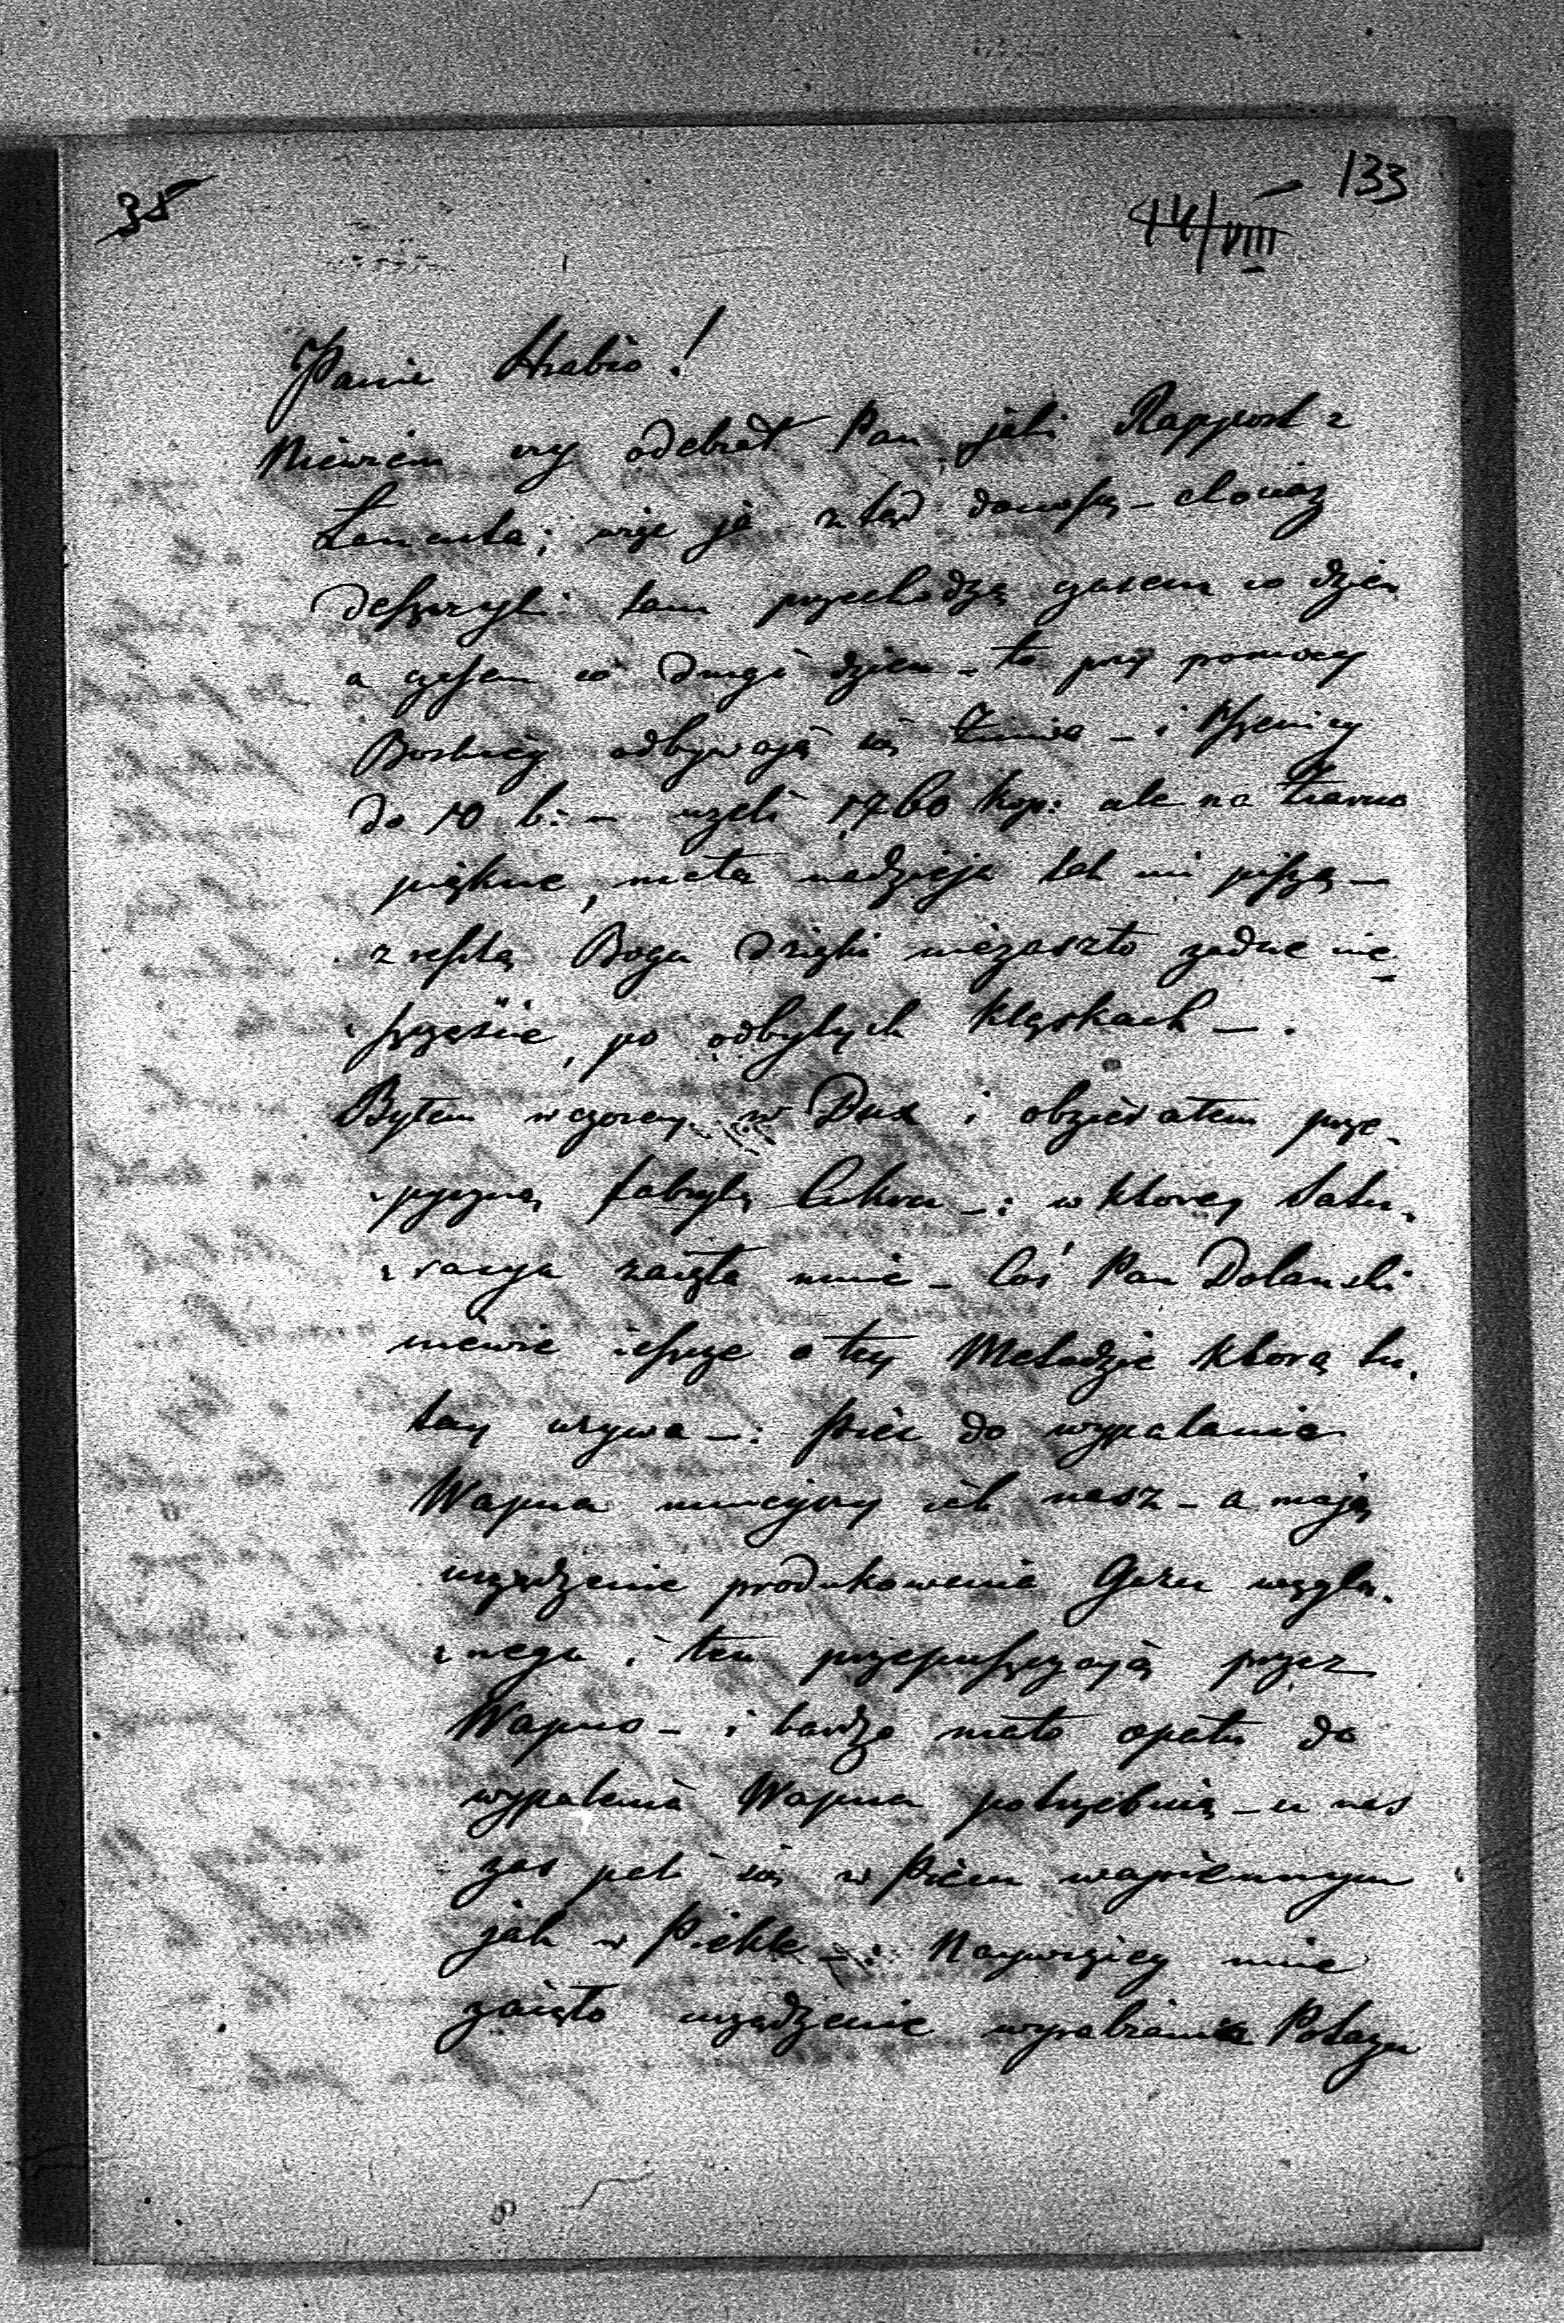 38
133
14/VIII
Panie Hrabio!
Niewiem czy odebrał Pan jaki Rapport z
Łancuta; więc ja ztąd donoszę – chociaż
deszczyki tam przechodzą czasem co dzien
a czasem co drugi dzien – to przy pomocy
Boskiéy odbywają się Żniwa – i Pszenicy
do 10 b: – uzęli 1760 kop: ale na Ziarno
piękne, mała nadzieja tak mi piszą –
zresztą Boga dzięki niezaszło zadne nie
szczęście, po odbytych klęskach – .
Byłem wczoray w Dux i obzierałem prze-
pyszną fabrykę Cukru – : w ktorey Satu-
racya zaięła mnie – Coś Pan Dolanski
niewie ieszcze o tey Metodzie ktorą tu-
tay uzywa – : Piec do wypalania
Wapna mnieyszy iak nasz – a mają
urządzenie produkowania Gazu węgla-
nego i ten przepuszczają przez
Wapno – i bardzo mało opału do
wypalenia Wapna potrzebuią – u nas
zas pali się w Piecu wapiennym
jak w Piekle – : Naywięcey mnie
zaięło urządzenie wyrabiania Potazu